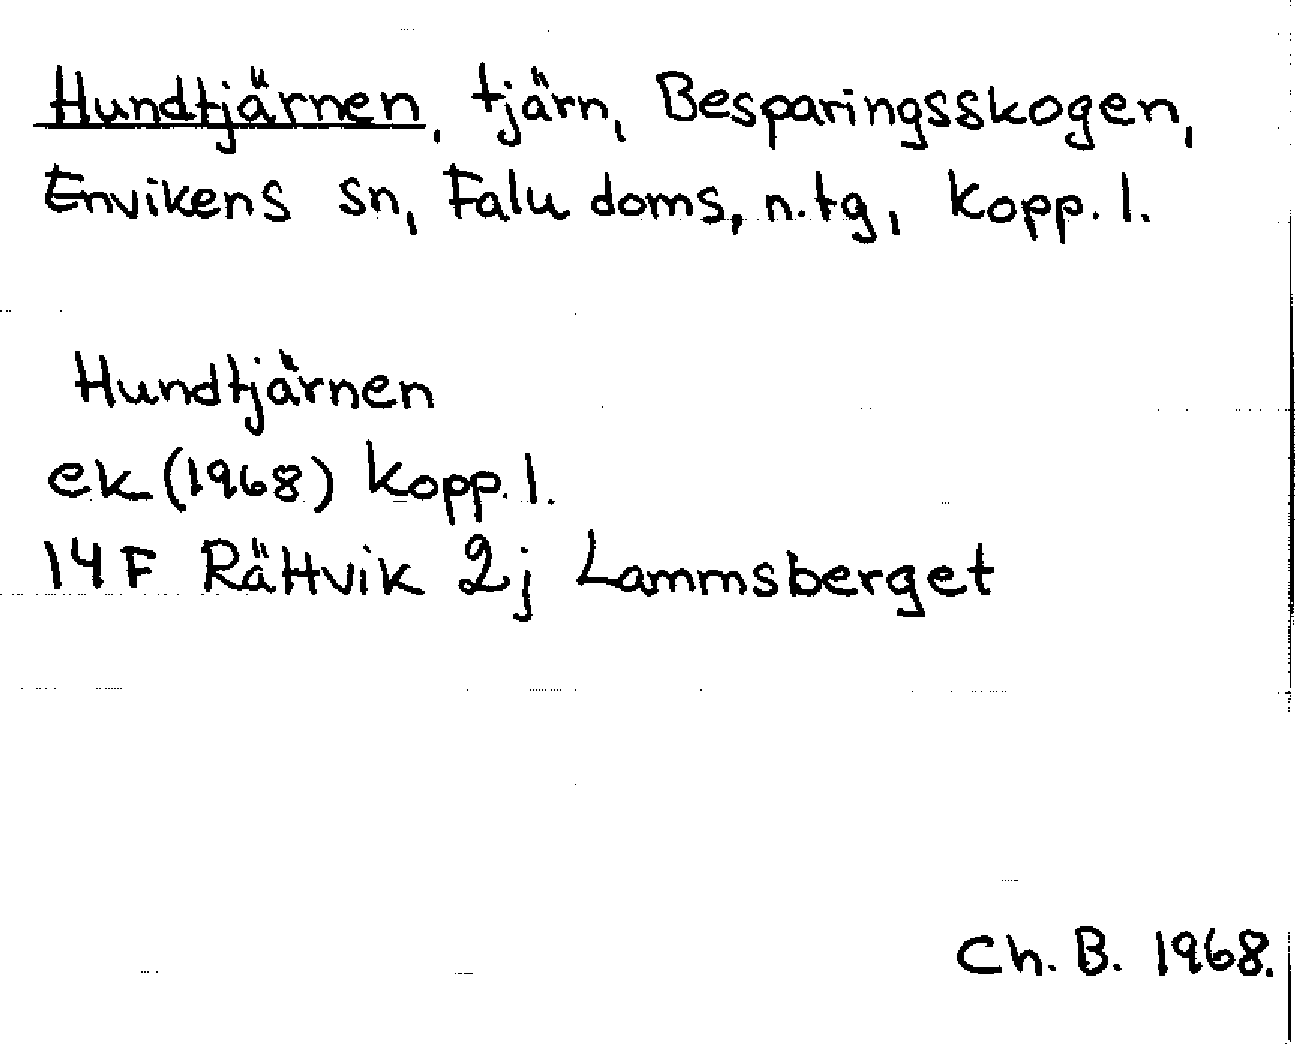 Hundtjärnen, tjärn, Besparingsskogen,
Envikens sn, Falu doms, n.tg, Kopp. l.
Hundtjärnen
ek (1968) Kopp. l.
14 F Rättvik 2j Lammsberget
Ch. B. 1968.